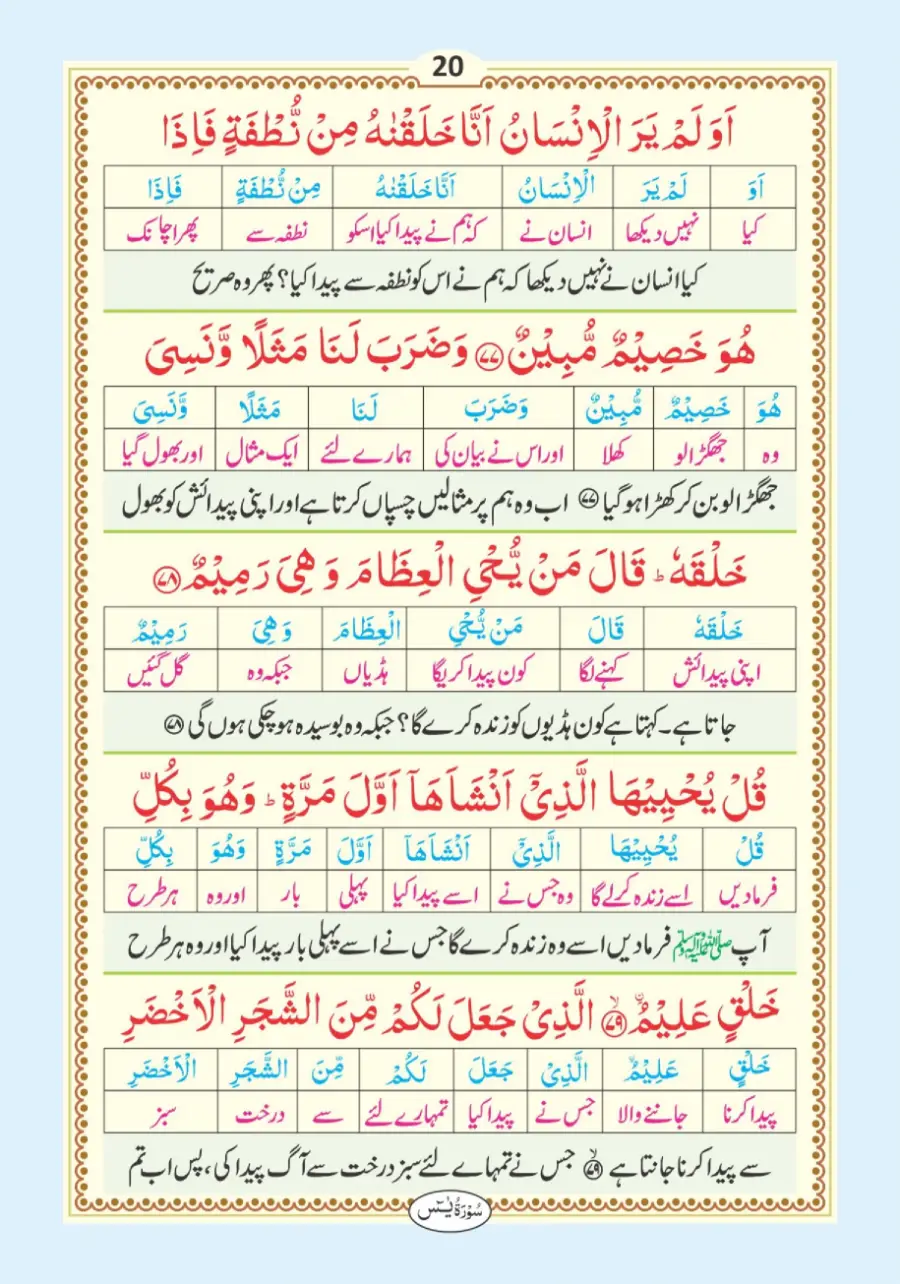 20
اَوَ لَمْ يَرَ الْاِنْسَانُ اَنَّا خَلَقْنٰهُ مِنْ نُّطْفَةٍ فَاِذَا
اَوَ لَمْ يَرَ الْاِنْسَانُ اَنَّا خَلَقْنٰهُ مِنْ نُّطْفَةٍ فَاِذَا
کیا نہیں دیکھا انسان نے کہ ہم نے پیدا کیا اسکو نطفہ سے پھر اچانک
کیا انسان نے نہیں دیکھا کہ ہم نے اس کو نطفہ سے پیدا کیا؟ پھر وہ صریح
هُوَ خَصِيْمٌ مُّبِيْنٌ ۷۷ وَضَرَبَ لَنَا مَثَلًا وَّنَسِىَ
هُوَ خَصِيْمٌ مُّبِيْنٌ وَضَرَبَ لَنَا مَثَلًا وَّنَسِىَ
وہ جھگڑالو کھلا اور اس نے بیان کی ہمارے لئے ایک مثال اور بھول گیا
جھگڑالو بن کر کھڑا ہو گیا ۷۷ اب وہ ہم پر مثالیں چسپاں کرتا ہے اور اپنی پیدائش کو بھول
خَلْقَهٗ ؕ قَالَ مَنْ يُّحْىِ الْعِظَامَ وَ هِىَ رَمِيْمٌ ۷۸
خَلْقَهٗ قَالَ مَنْ يُّحْىِ الْعِظَامَ وَ هِىَ رَمِيْمٌ
اپنی پیدائش کہنے لگا کون پیدا کریگا ہڈیاں جبکہ وہ گل گئیں
جاتا ہے۔ کہتا ہے کون ہڈیوں کو زندہ کرے گا؟ جبکہ وہ بوسیدہ ہو چکی ہوں گی ۷۸
قُلْ يُحْيِيْهَا الَّذِىْٓ اَنْشَاَهَاۤ اَوَّلَ مَرَّةٍ ؕ وَهُوَ بِكُلِّ
قُلْ يُحْيِيْهَا الَّذِىْٓ اَنْشَاَهَاۤ اَوَّلَ مَرَّةٍ وَهُوَ بِكُلِّ
فرما دیں اسے زندہ کرلے گا وہ جس نے اسے پیدا کیا پہلی بار اور وہ ہر طرح
آپ ﷺ فرما دیں اسے وہ زندہ کرے گا جس نے اسے پہلی بار پیدا کیا اور وہ ہر طرح
خَلْقٍ عَلِيْمُۨ ۷۹ ۙ الَّذِىْ جَعَلَ لَكُمْ مِّنَ الشَّجَرِ الْاَخْضَرِ
خَلْقٍ عَلِيْمُۨ الَّذِىْ جَعَلَ لَكُمْ مِّنَ الشَّجَرِ الْاَخْضَرِ
پیدا کرنا جاننے والا جس نے پیدا کیا تمہارے لئے سے درخت سبز
سے پیدا کرنا جانتا ہے ۷۹ جس نے تمہارے لئے سبز درخت سے آگ پیدا کی، پس اب تم
سُوْرَةُ يٰسٓ